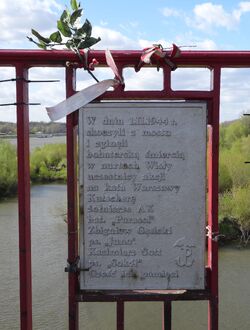 W dniu 1.II.1944 r.
skoczyli z mostu
i zginęli
bohaterską śmiercią
w nurtach Wisły
uczestnicy akcji
na kata Warszawy
Kutscherę
żołnierze AK
bat. „Parasol”
Zbigniew Gęsicki
ps. „Juno”
Kazimierz Sott
ps. „Sokół”
Cześć ich pamięci